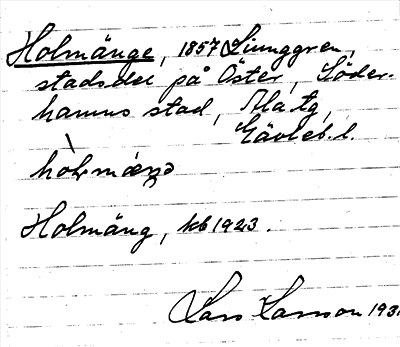 Holmänge, 1857 Ljunggren,
stadsdel på Öster, Söder-
hamns stad, Ala tg,
Gävleb. l.
Holmäng, kb 1923.
Lars Larsson 193